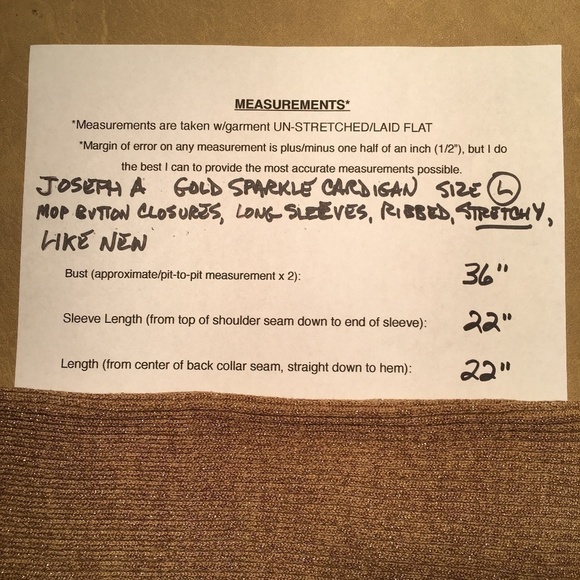 MEASUREMENTS*
*Measurements are taken w/garment UN-STRETCHED/LAID FLAT
*Margin of error on any measurement is plus/minus one half of an inch (1/2"), but I do
the best I can to provide the most accurate measurements possible.
JOSEPH A GOLD SPARKLE CARDIGAN SIZE L
MOP BUTTON CLOSURES, LONG SLEEVES, RIBBED, STRETCHY,
LIKE NEW
Bust (approximate/pit-to-pit measurement x 2): 36"
Sleeve Length (from top of shoulder seam down to end of sleeve): 22"
Length (from center of back collar seam, straight down to hem): 22"